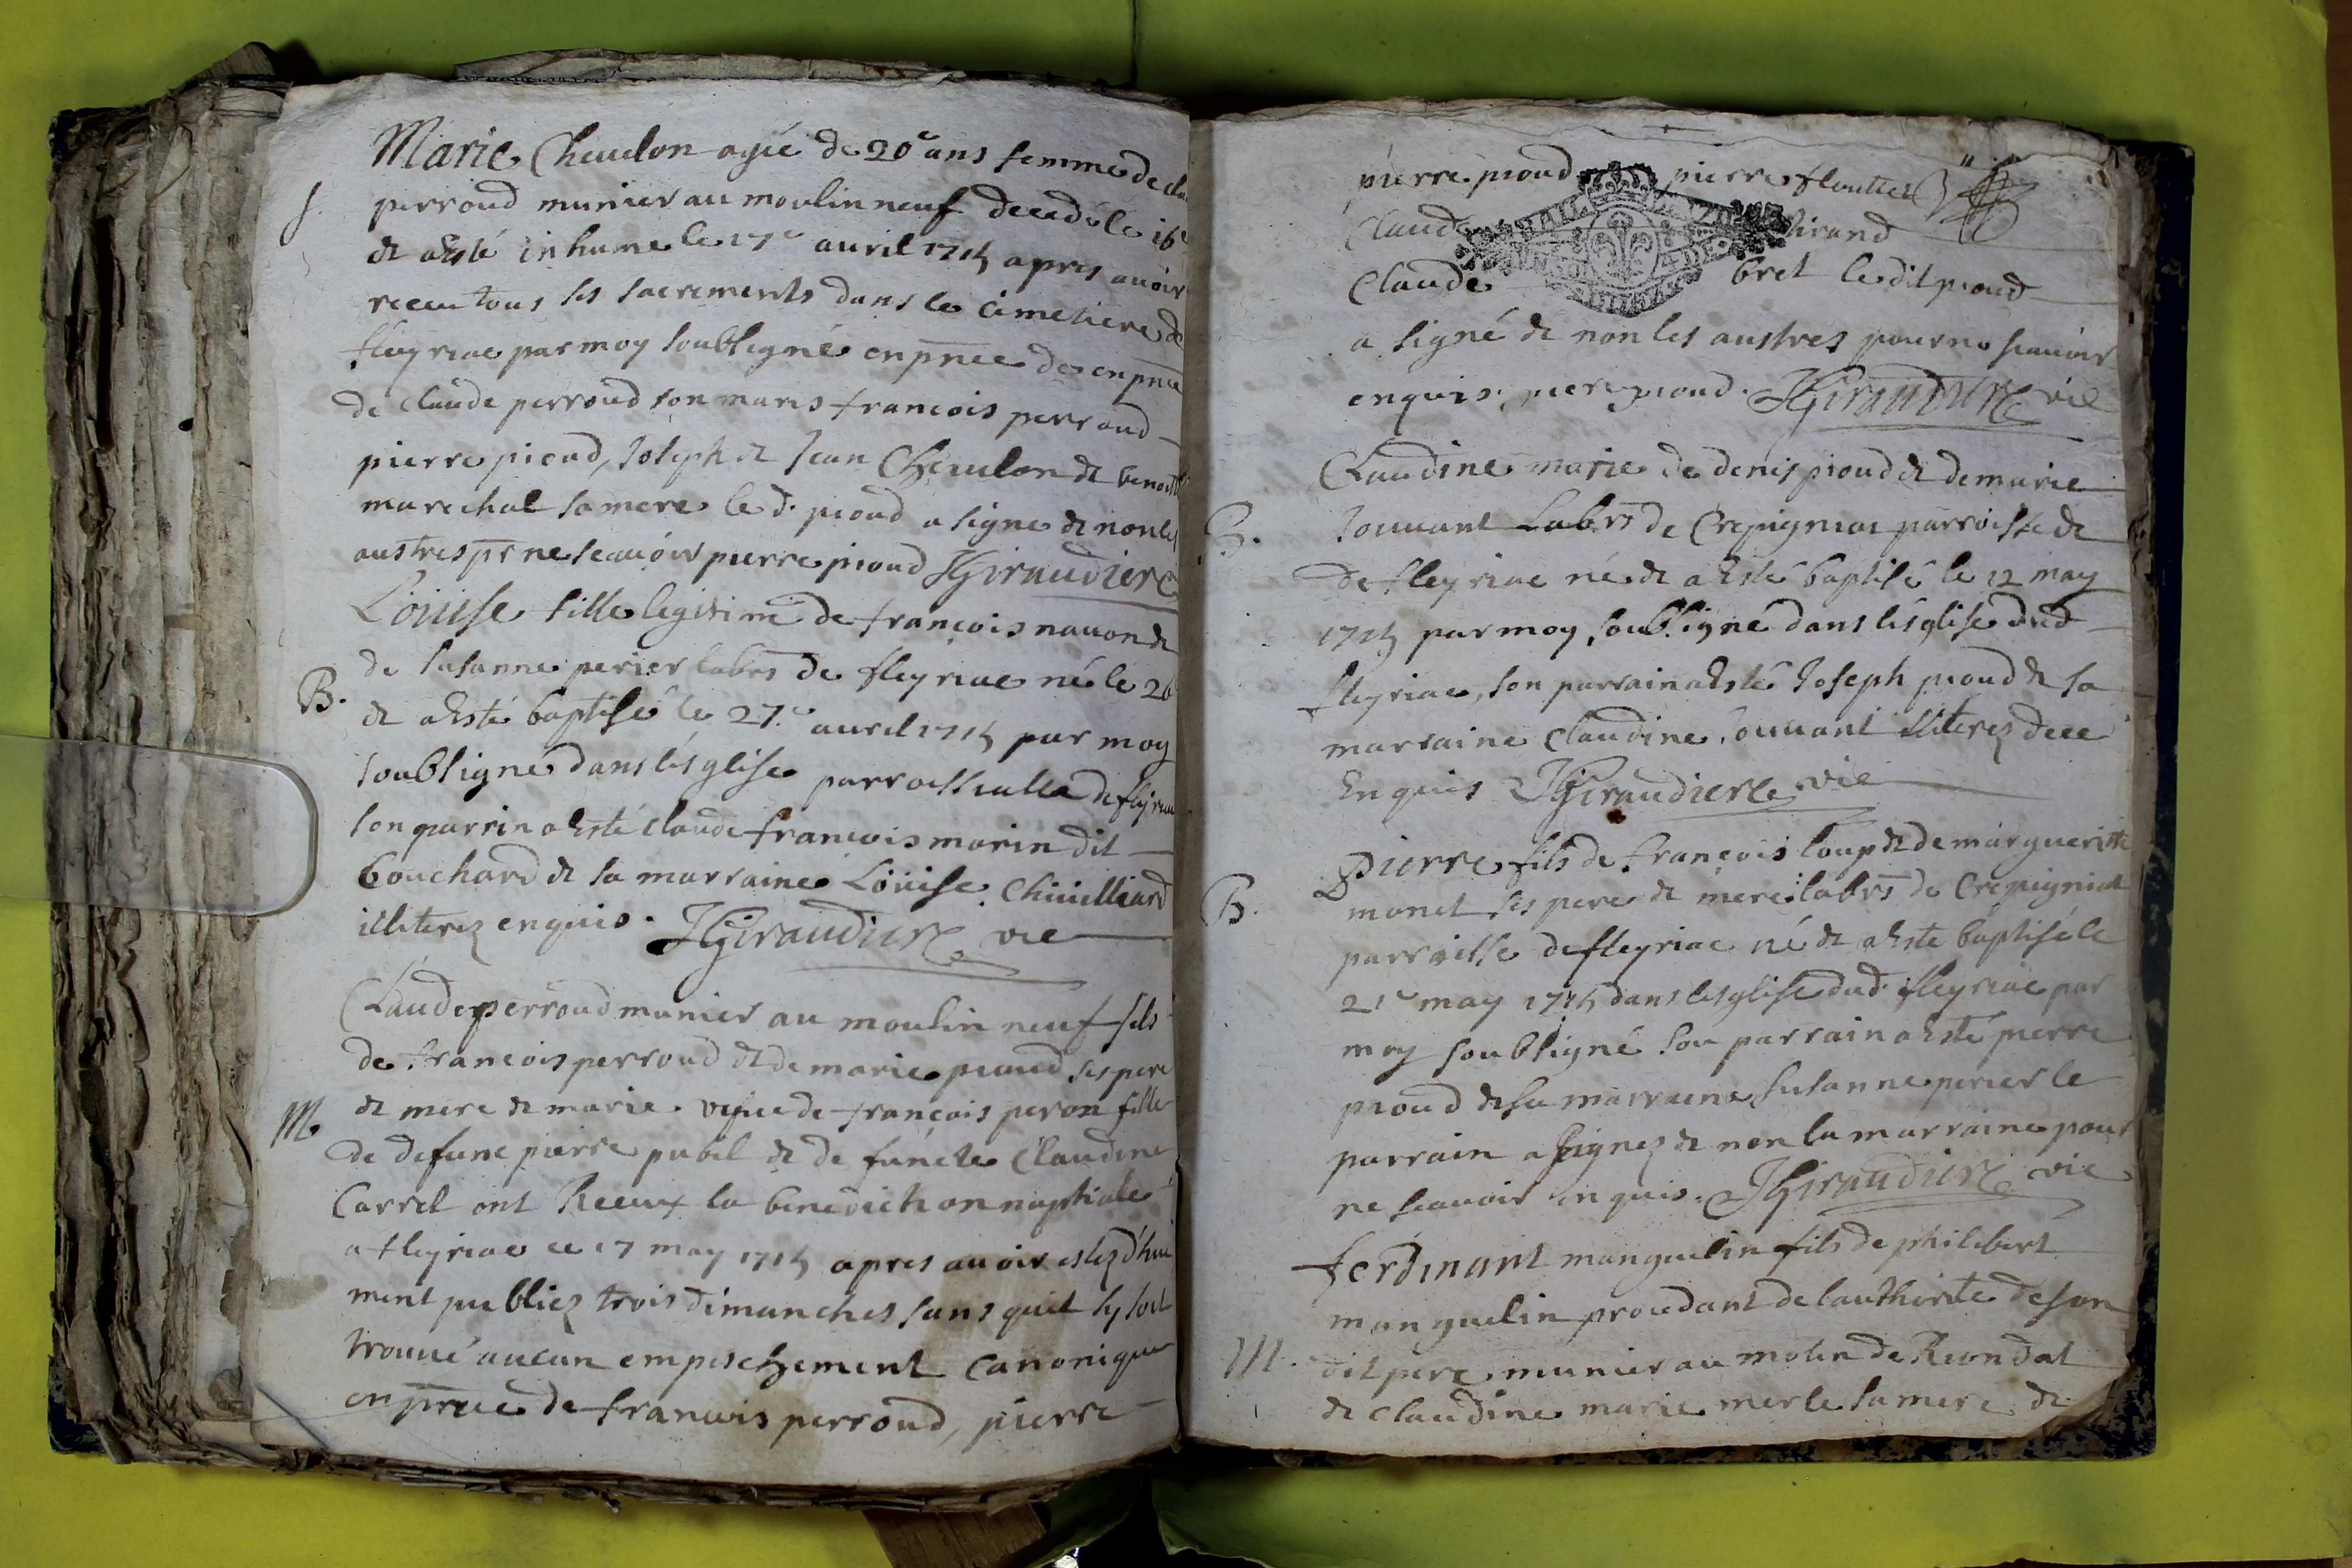 Marie Cheudon agée de 20e ans femme de cla
S. perroud munier au moulin neuf decedé le 16e
& a esté inhumé le 17e auril 1715 apres auoir
receu tous ses sacrements dans le cimetiere de
fleyriac par moy soubsigné en pnce de en pnce
de claude perroud son maris francois perroud
pierre pioud, Joseph & Jean Cheudon & benoitte
marechal sa mere le d. pioud a signe & non les
austres pr ne scauoir pierre pioud JGiraudiere
Loüise fille legitime de françois nauon &
de susanne perier labrs de fleyriac né le 26
B. & a esté baptisé le 27.e auril 1715 par moy
soubsigné dans lésglise parroissialle de fleyriac
son parrin a esté claude francois morin dit
bouchard & sa marraine Loüise Chiuilliard
illiterez enquis. JGiraudiere vic
Claude perroud munier au moulin neuf fils
de francois perroud & de marie pioud ses pere
M. & mere & marie vefue de françois peron fille
de defunc pierre pubil & de functe Claudine
Carrel ont Receux la benediction nuptiale
a fleyriac ce 17 may 1715 apres auoir estez dhue
ment publiez trois dimanches sans quil sy soit
trouué aucun empeschement canonique
en pnce de francois perroud, pierre
pierre pioud pierre fleuttes
Claude
Claude bret ledit pioud
a signé & non les austres pour ne scauoir
enquis. piere pioud. JGiraudiere vic
Claudine marie de denis pioud & de marie
B. Jouuant Labrs de Crepigniat parroisse de
de fleyriac né & a esté baptisé le 12 may
1715 par moy soubsigné dans lésglise dud
fleyriac, son parrain a esté Joseph pioud & sa
marraine claudine Jouuant illiterez de ce
Enquis JGiraudiere vic
Pierre fils de françois loup & de margueritte
B. monet ses pere & mere labrs de Crepigniat
parroisse de fleyriac né & a esté baptisé le
21e may 1715 dans lesglise dud fleyriac par
moy soubsigné son parrain a esté pierre
pioud & sa marraine susanne perier le
parrain a signez & non la marraine pour
ne scauoir enquis. JGiraudiere vic
ferdinant manguelin fils de philibert
manguelin procedant de lauthorité de son
M. dit pere munier au molin de Riondat
& claudine marie merle sa mere &